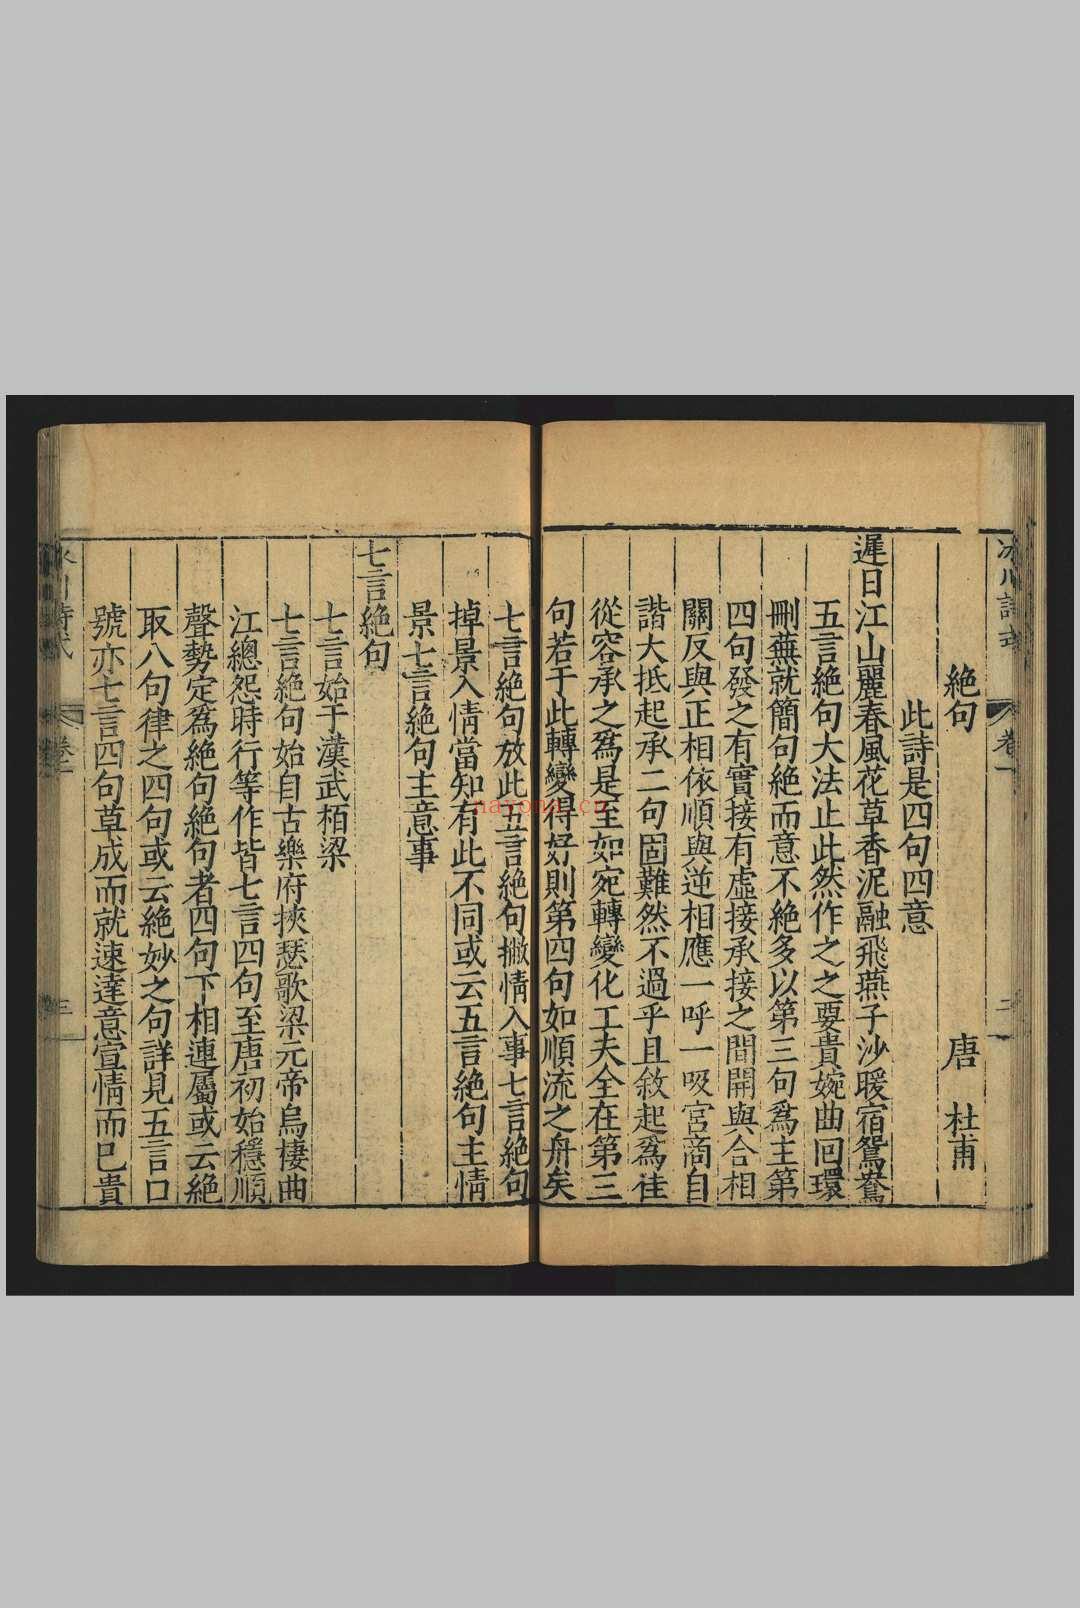 冰川詩式 卷一 二
絶句 唐 杜甫
此詩是四句四意
遲日江山麗春風花草香泥融飛燕子沙暖宿鴛鴦
五言絶句大法止此然作之之要貴婉曲回環
刪蕪就簡句絶而意不絶多以第三句爲主第
四句發之有實接有虛接承接之間開與合相
關反與正相依順與逆相應一呼一吸宮商自
諧大抵起承二句固難然不過平且敘起爲佳
從容承之爲是至如宛轉變化工夫全在第三
句若于此轉變得好則第四句如順流之舟矣
七言絶句放此五言絶句撇情入事七言絶句
掉景入情當知有此不同或云五言絶句主情
景七言絶句主意事
七言絶句
七言始于漢武栢梁
七言絶句始自古樂府挾瑟歌梁元帝烏棲曲
江總怨時行等作皆七言四句至唐初始穩順
聲勢定爲絶句絶句者四句下相連屬或云絶
取八句律之四句或云絶妙之句詳見五言口
號亦七言四句草成而就速達意宣情而已貴
卷一 三
nayona.cn